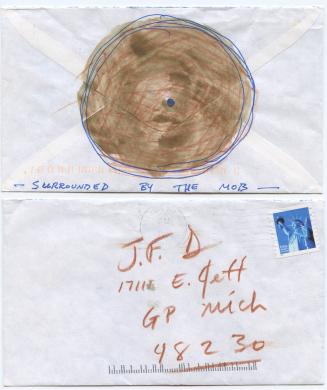 — SURROUNDED BY THE MOB —
J.F. D
17111 E. Jeff
GP Mich
48230